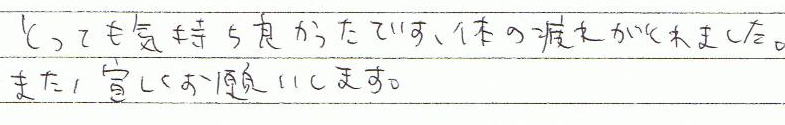 とっても気持ち良かったです、体の疲れがとれました。
また、宜しくお願いします。